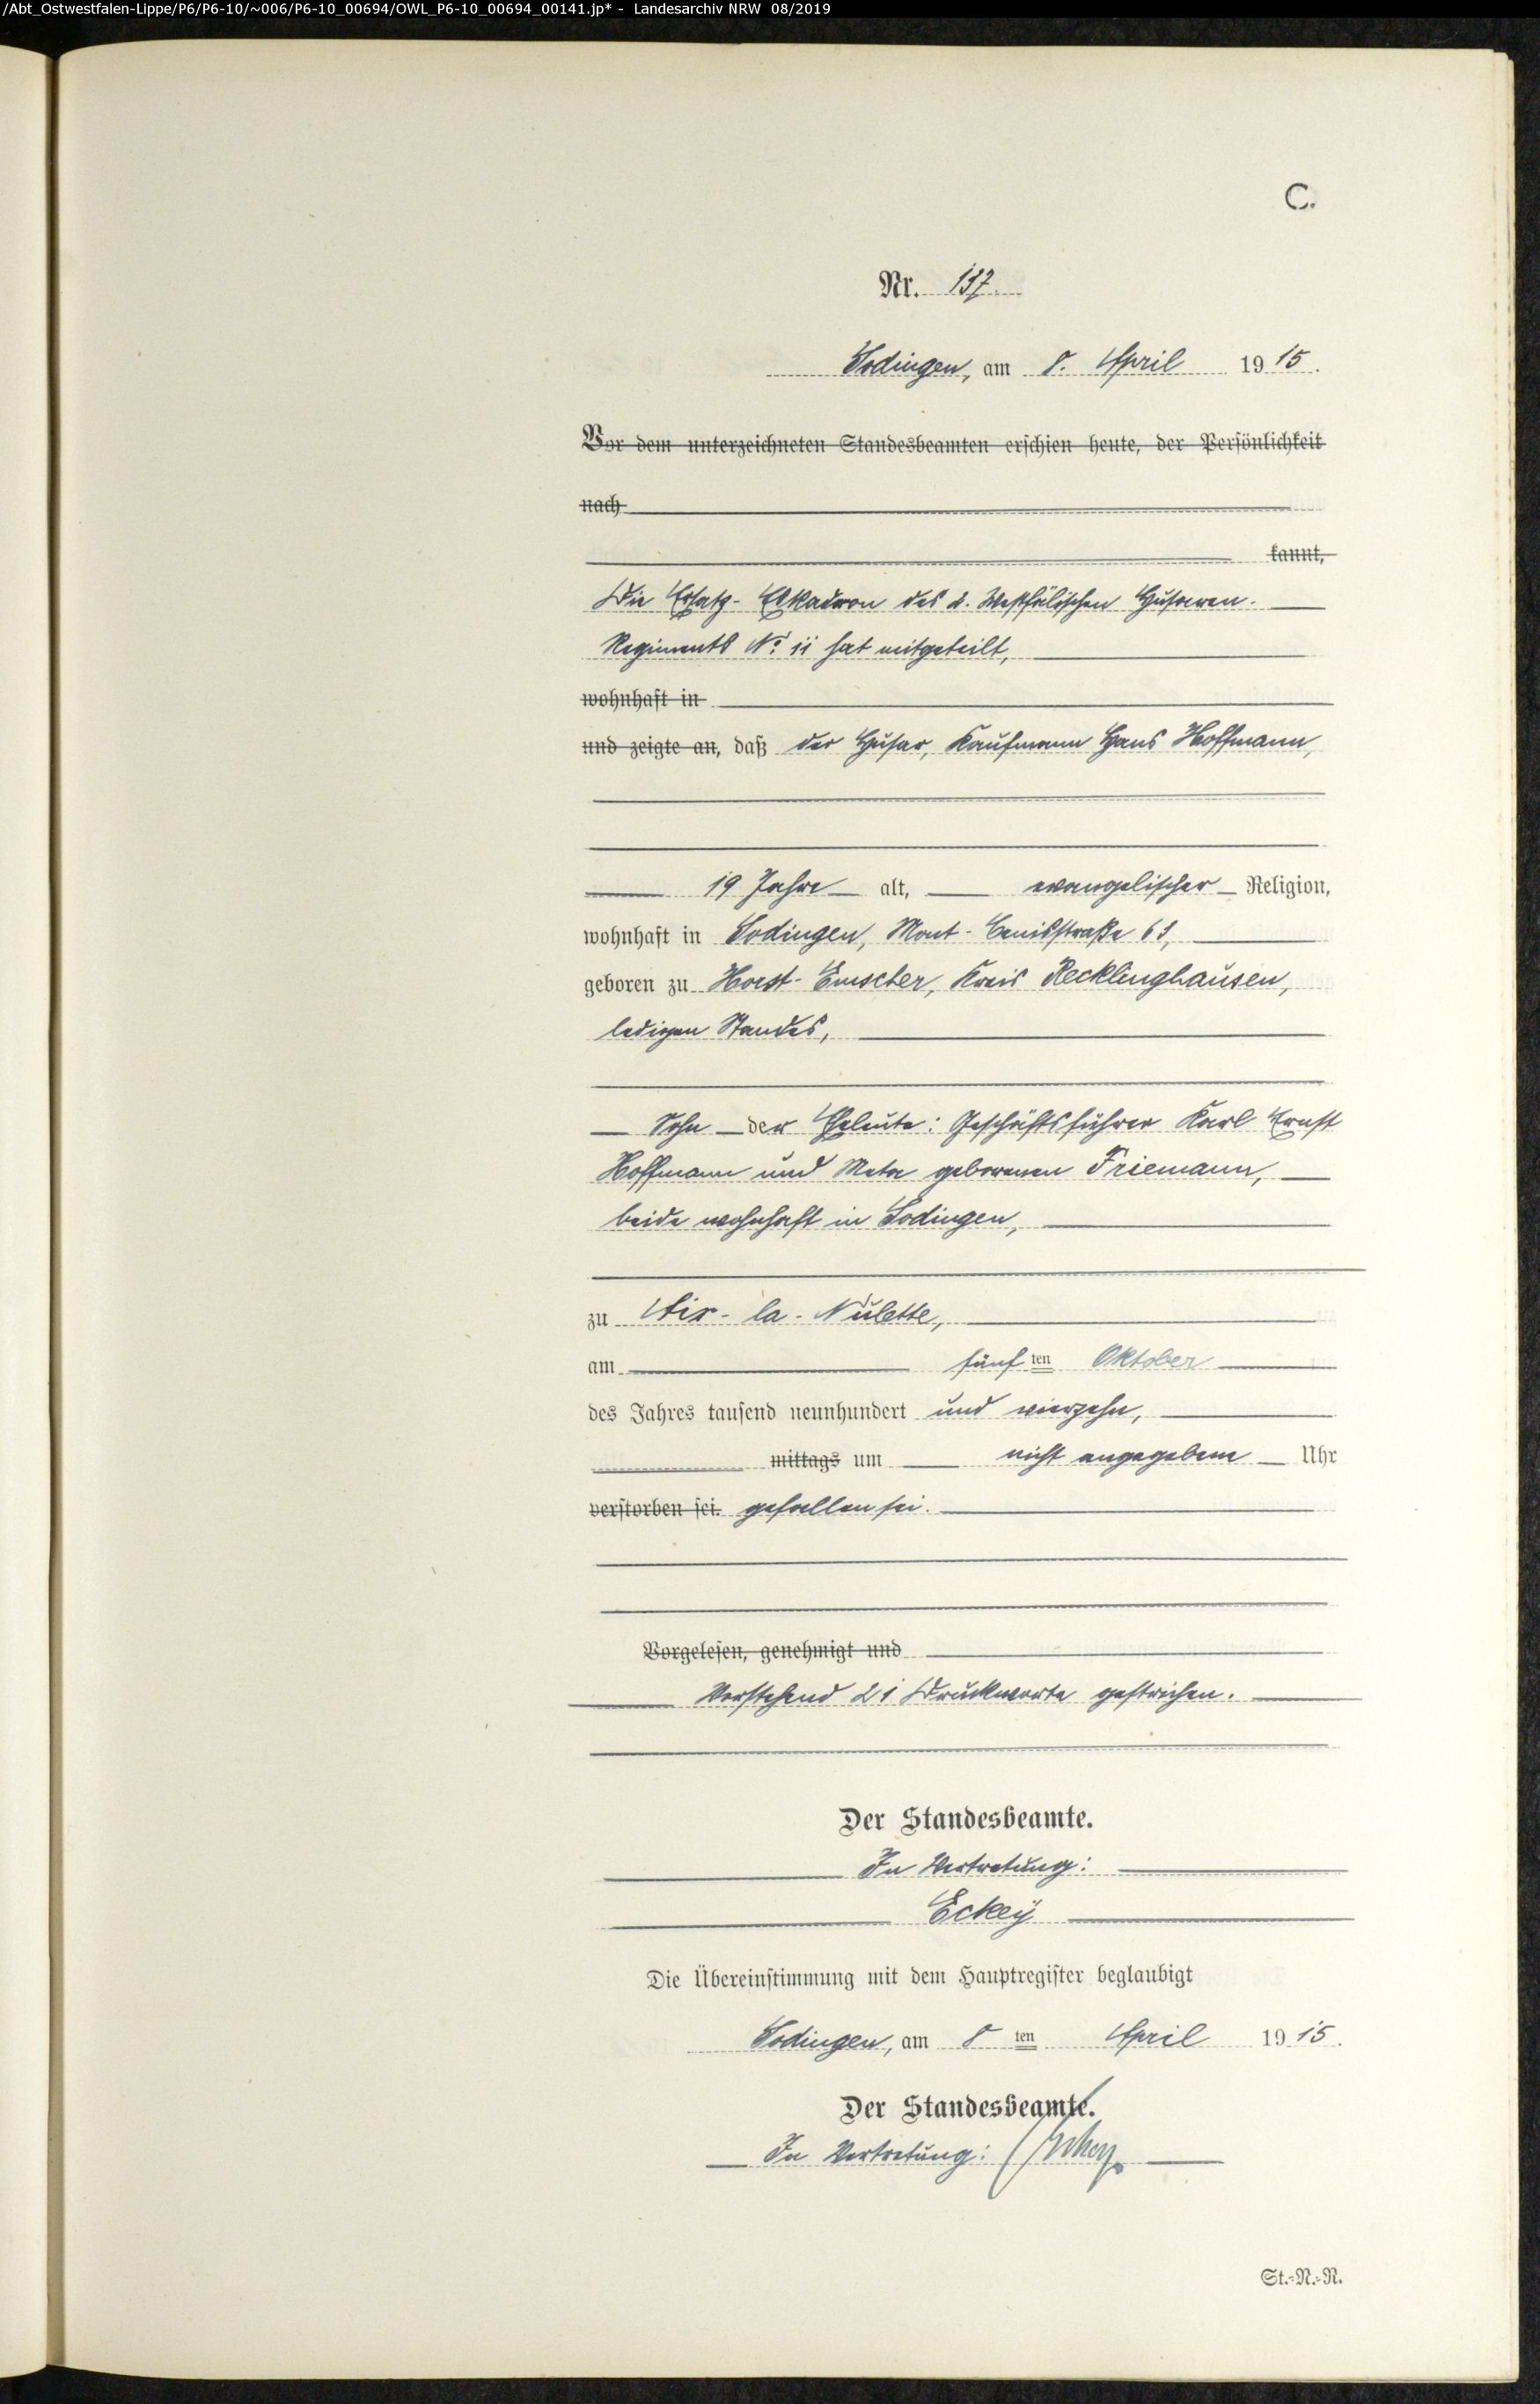 /Abt_Ostwestfalen-Lippe/P6/P6-10/~006/P6-10_00694/OWL_P6-10_00694_00141.jp* - Landesarchiv NRW 08/2019
C.
Nr. 137.
Sodingen, am 8. April 1915.
Vor dem unterzeichneten Standesbeamten erschien heute, der Persönlichkeit
nach
kannt,
Die Ersatz-Eskadron des 2. Westfälischen Husaren-
Regiments No. 11 hat mitgeteilt,
wohnhaft in
und zeigte an, daß der Husar, Kaufmann Hans Hoffmann,
19 Jahre alt, evangelischer Religion,
wohnhaft in Sodingen, Mont-Cenisstraße 63,
geboren zu Horst-Emscher, Kreis Recklinghausen,
ledigen Standes,
Sohn der Eheleute: Geschäftsführer Karl Ernst
Hoffmann und Meta geborenen Friemann,
beide wohnhaft in Sodingen,
zu Aix-la-Nulette,
am fünften Oktober
des Jahres tausend neunhundert und vierzehn,
mittags um nicht angegebene Uhr
verstorben sei. gefallen sei.
Vorgelesen, genehmigt und
Vorstehend 21 Druckworte gestrichen.
Der Standesbeamte.
In Vertretung:
Eckey
Die Übereinstimmung mit dem Hauptregister beglaubigt
Sodingen, am 8ten April 1915.
Der Standesbeamte.
In Vertretung: Eckey
St.-N.-R.